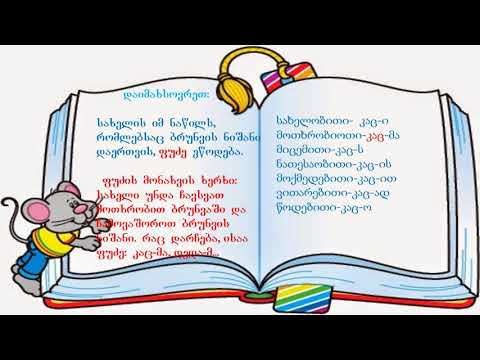 დაიმახსოვრეთ:
სახელის იმ ნაწილს,
რომლებსაც ბრუნვის ნიშანი
დაერთვის, ფუძე ეწოდება.
ფუძის მონახვის ხერხი:
სახელი უნდა ჩავსვათ
მოთხრობით ბრუნვაში და
ჩამოვაშოროთ ბრუნვის
ნიშანი. რაც დარჩება, ისაა
ფუძე: კაც-მა, დედა-მ...
სახელობითი- კაც-ი
მოთხრობიოთი-კაც-მა
მიცემითი-კაც-ს
ნათესაობითი-კაც-ის
მოქმედებითი-კაც-ით
ვითარებითი-კაც-ად
წოდებითი-კაც-ო